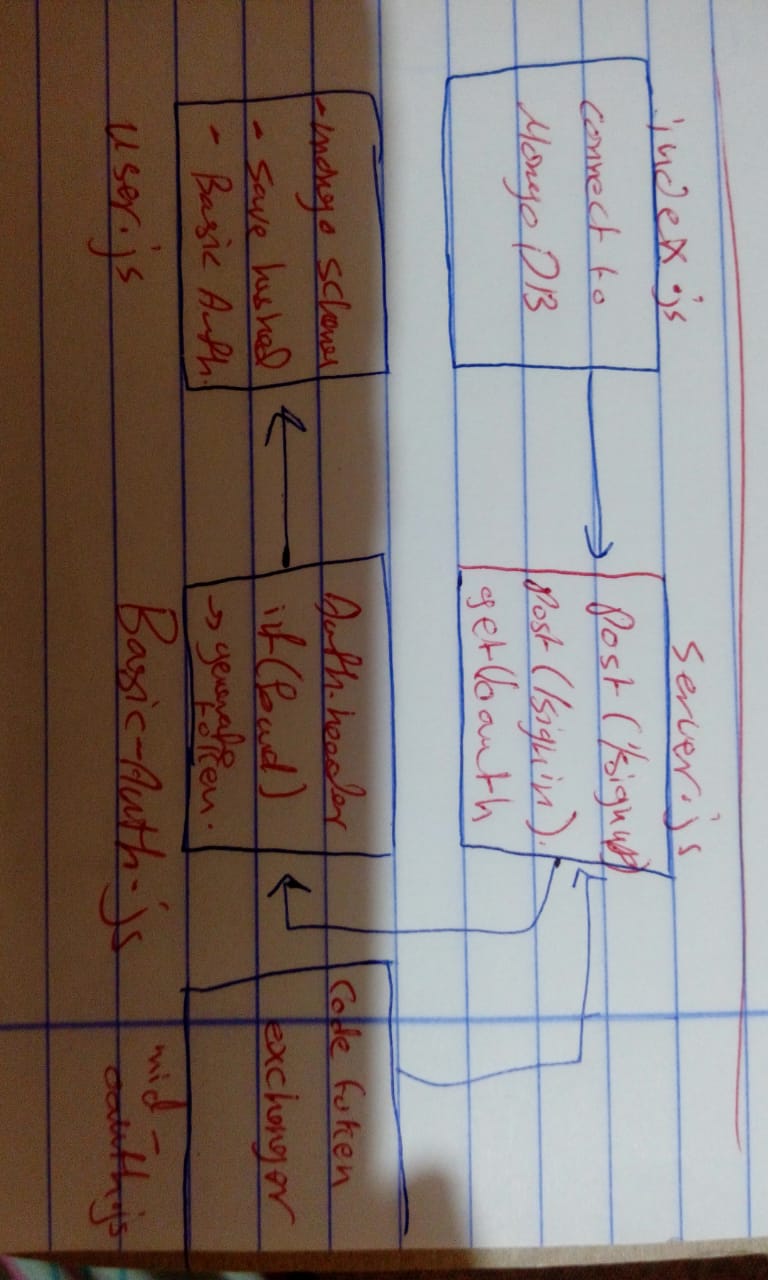 index.js
connect to
MongoDB
server.js
Post(/signup)
Post(/signin).
get(/oauth
- mongo schema
- Save hashed
- Basic Auth.
user.js
Auth.header
if(found)
→ generate
token.
Basic-Auth.js
Code token
exchanger
mid-
oauth.js